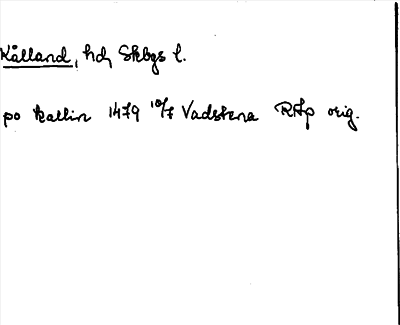 Kålland, hd, Skbgs l.
po kallin 1479 10/7 Vadstena RAp orig.